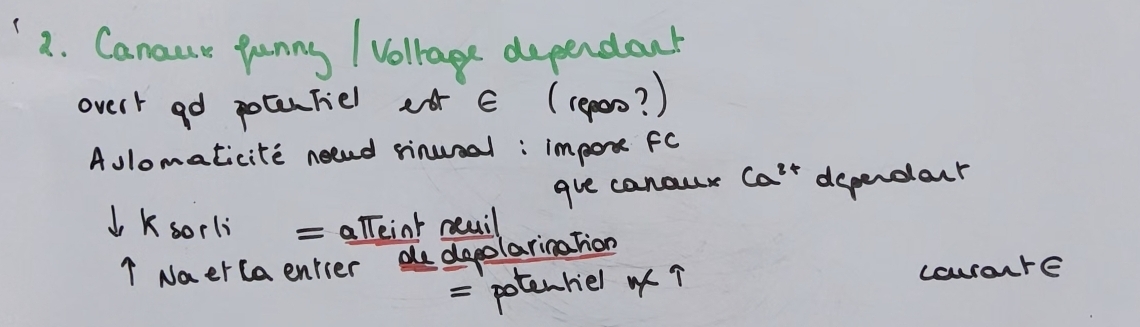 2. Canaux funny / Voltage dependant
overt qd potentiel est ⊖ (repos?)
Automaticité nœud sinusal : impose FC
que canaux Ca²⁺ dependant
↓ K sorti = atteint seuil
de depolarisation
↑ Na et Ca entrer
= potentiel ↑
courant ⊖